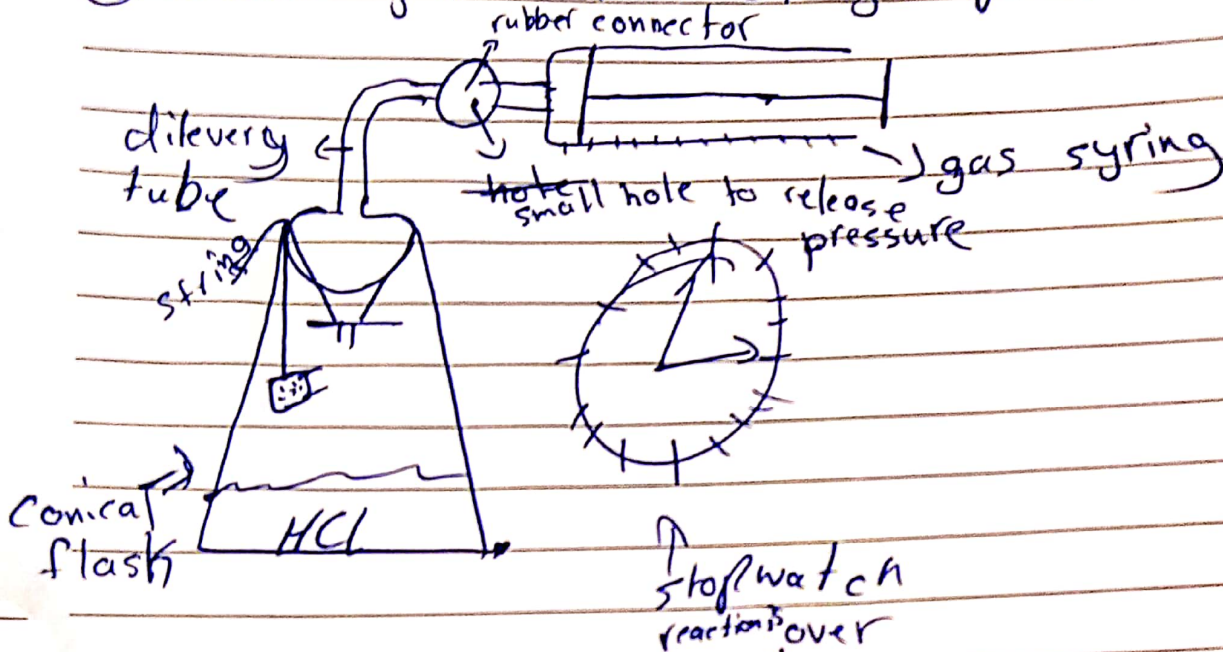 rubber connector
dilevery
tube
gas syring
small hole to release
pressure
string
Conical
flask
HCl
stopwatch
reaction is over